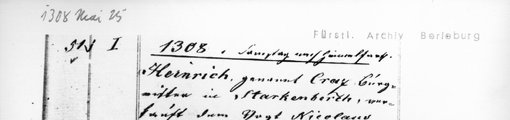 1308 Mai 25
Fürstl. Archiv Berleburg
513 I 1308, Samstag nach Himmelfahrt.
Heinrich, genannt Crax, Burg-
in Starkenberch, ver-
kauft dem Vogt Nicolaus